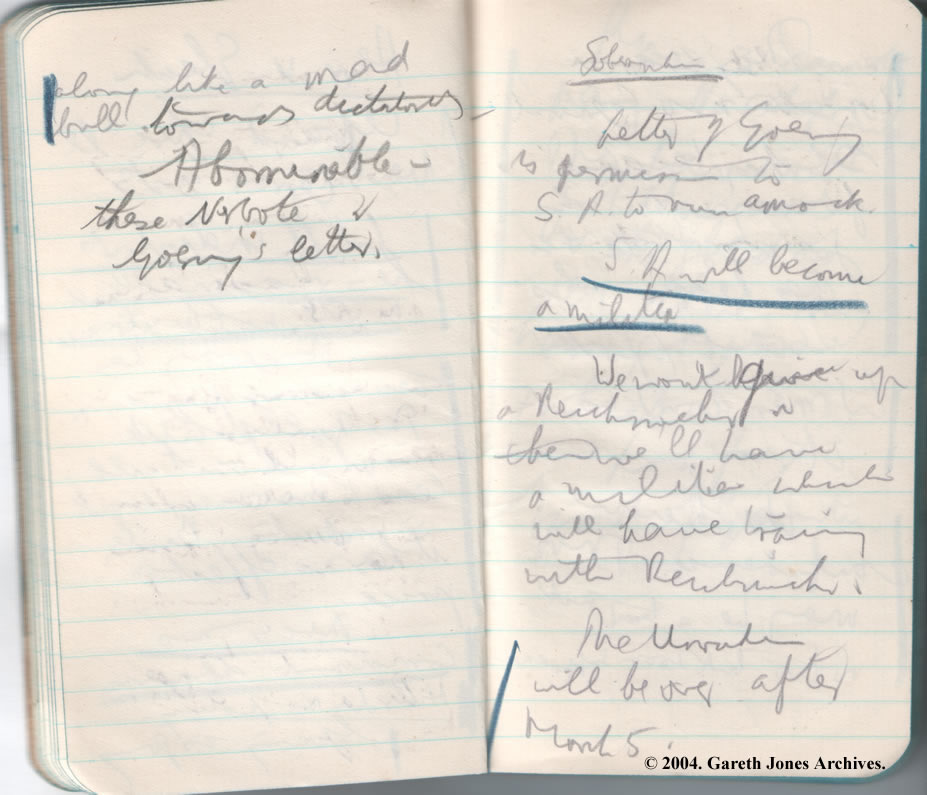 along like a mad
bull towards dictatorship
Abominable –
these Verbote &
Goering's letter.
Letter of Goering
is permission to
S. A. to run amock.
S. A. will become
a militia
We won't give up
a Reichswehr
then we'll have
a militia which
will have training
with Reichswehr.
The
will be over after
March 5.
© 2004. Gareth Jones Archives.